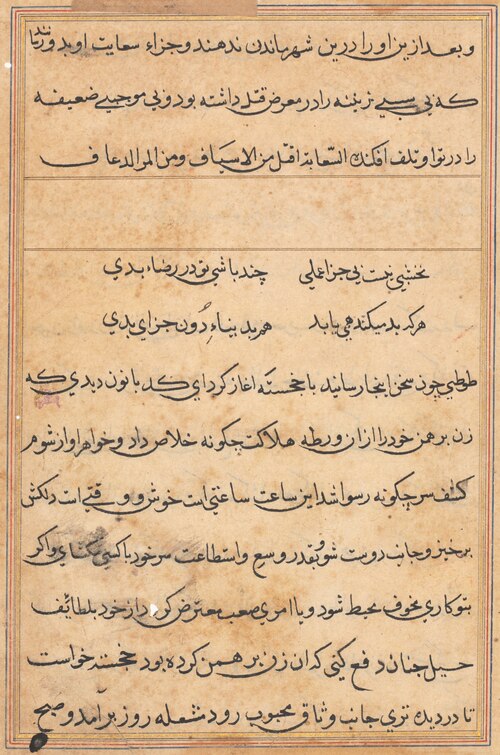 و بعد ازین او را درین شهر ماندن ندهند و جزاء سعایت او بدو رسانند
که بی سببی نرینه را در معرض قتل داشته بود و بی موجبی ضعیفه
را در توا و تلف افکنده السعایة اقتل من الاسیاف ومن المر الدعاف
نخشبی نیست بی جزا عملی چند باشی تو در رضاء بدی
هر که بد میکند همی یابد هم بدینجاء دون جزای بدی
طوطی چون سخن اینجا رسانید با خجسته آغاز کرد ای کدبانون دیدی که
زن برهمن خود را ازان ورطه هلاکت چگونه خلاص داد و خواهر او از شوم
کشف سر چگونه رسوا شد این ساعت ساعتی است خوش و وقتی است دلکش
برخیز و جانب دوست شو و بقدر وسع و استطاعت سر خود با کسی مکشای و اگر
بتو کاری مخوف محیط شود و یا امری صعب معترض گردد از خود بلطائف
حیل چنان دفع کنی که آن زن برهمن کرده بود خجسته خواست
تا در دیده تری جانب وثاق محبوب رود شعله روز برآمد و صبح